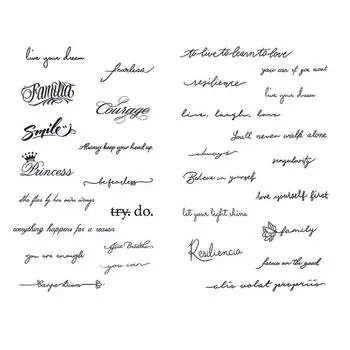 live your dream
fearless
Familia
Courage
Smile
Always keep your head up.
Princess
be fearless
she flies by her own wings
try. do.
everything happens for a reason
Just Breathe
you are enough
you can
Carpe Diem
to live to learn to love
you can if you want
resilience
live your dream
live, laugh, love
You'll never walk alone
always
singularity
Believe in yourself
love yourself first
let your light shine
family
Resiliencia
focus on the good
alis volat propriis